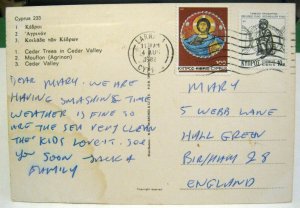 Cyprus 233
1 Κέδροι
2 Ἀγρινόν
3 Κοιλάδα τῶν Κέδρων
1 Cedar Trees in Cedar Valley
2 Moufflon (Agrinon)
3 Cedar Valley
DEAR MARY. WE ARE
HAVING SMASHING TIME
WEATHER IS FINE SO
ARE THE SEA VERY CLEAN
THE KIDS LOVE IT. SEE
YOU SOON JACK &
FAMILY
MARY
5 WEBB LANE
HALL GREEN
BIR/HAM 28
ENGLAND